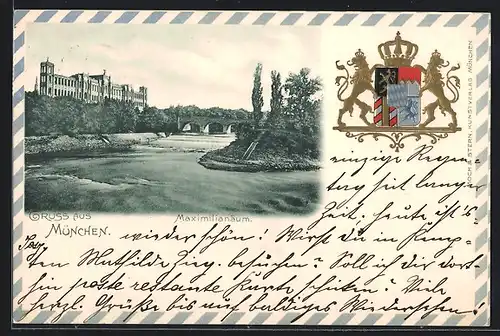 GRUSS AUS
MÜNCHEN.
Maximilianäum.
KOCH & STERN, KUNSTVERLAG MÜNCHEN
einzige Regen-
tag seit langer
Zeit. heute ist's
wieder schön! Wirst du in Kemp-
ten Mathilde besuchen? Soll ich dir dort-
hin poste restante Karte schicken? Viele
herzl. Grüße bis auf baldiges Wiedersehen!